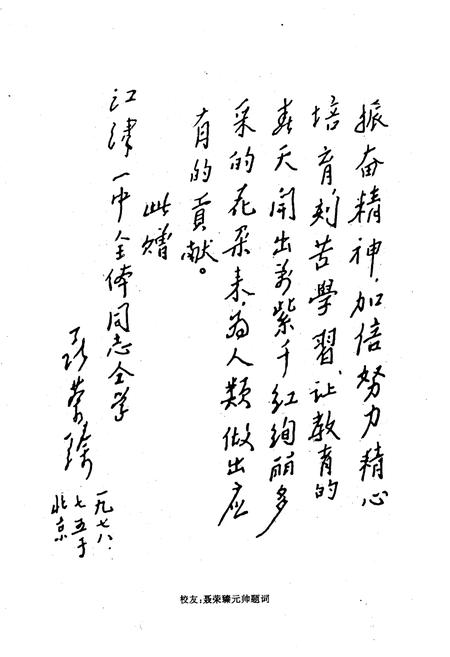 振奋精神，加倍努力，精心
培育，刻苦學習，让教育的
春天開出萬紫千红绚丽多
采的花朵来，为人類做出应
有的貢献。
此赠
江津一中全体同志仝学
聂荣臻
一九七八．
七．五于
北京
校友：聂荣臻元帅题词